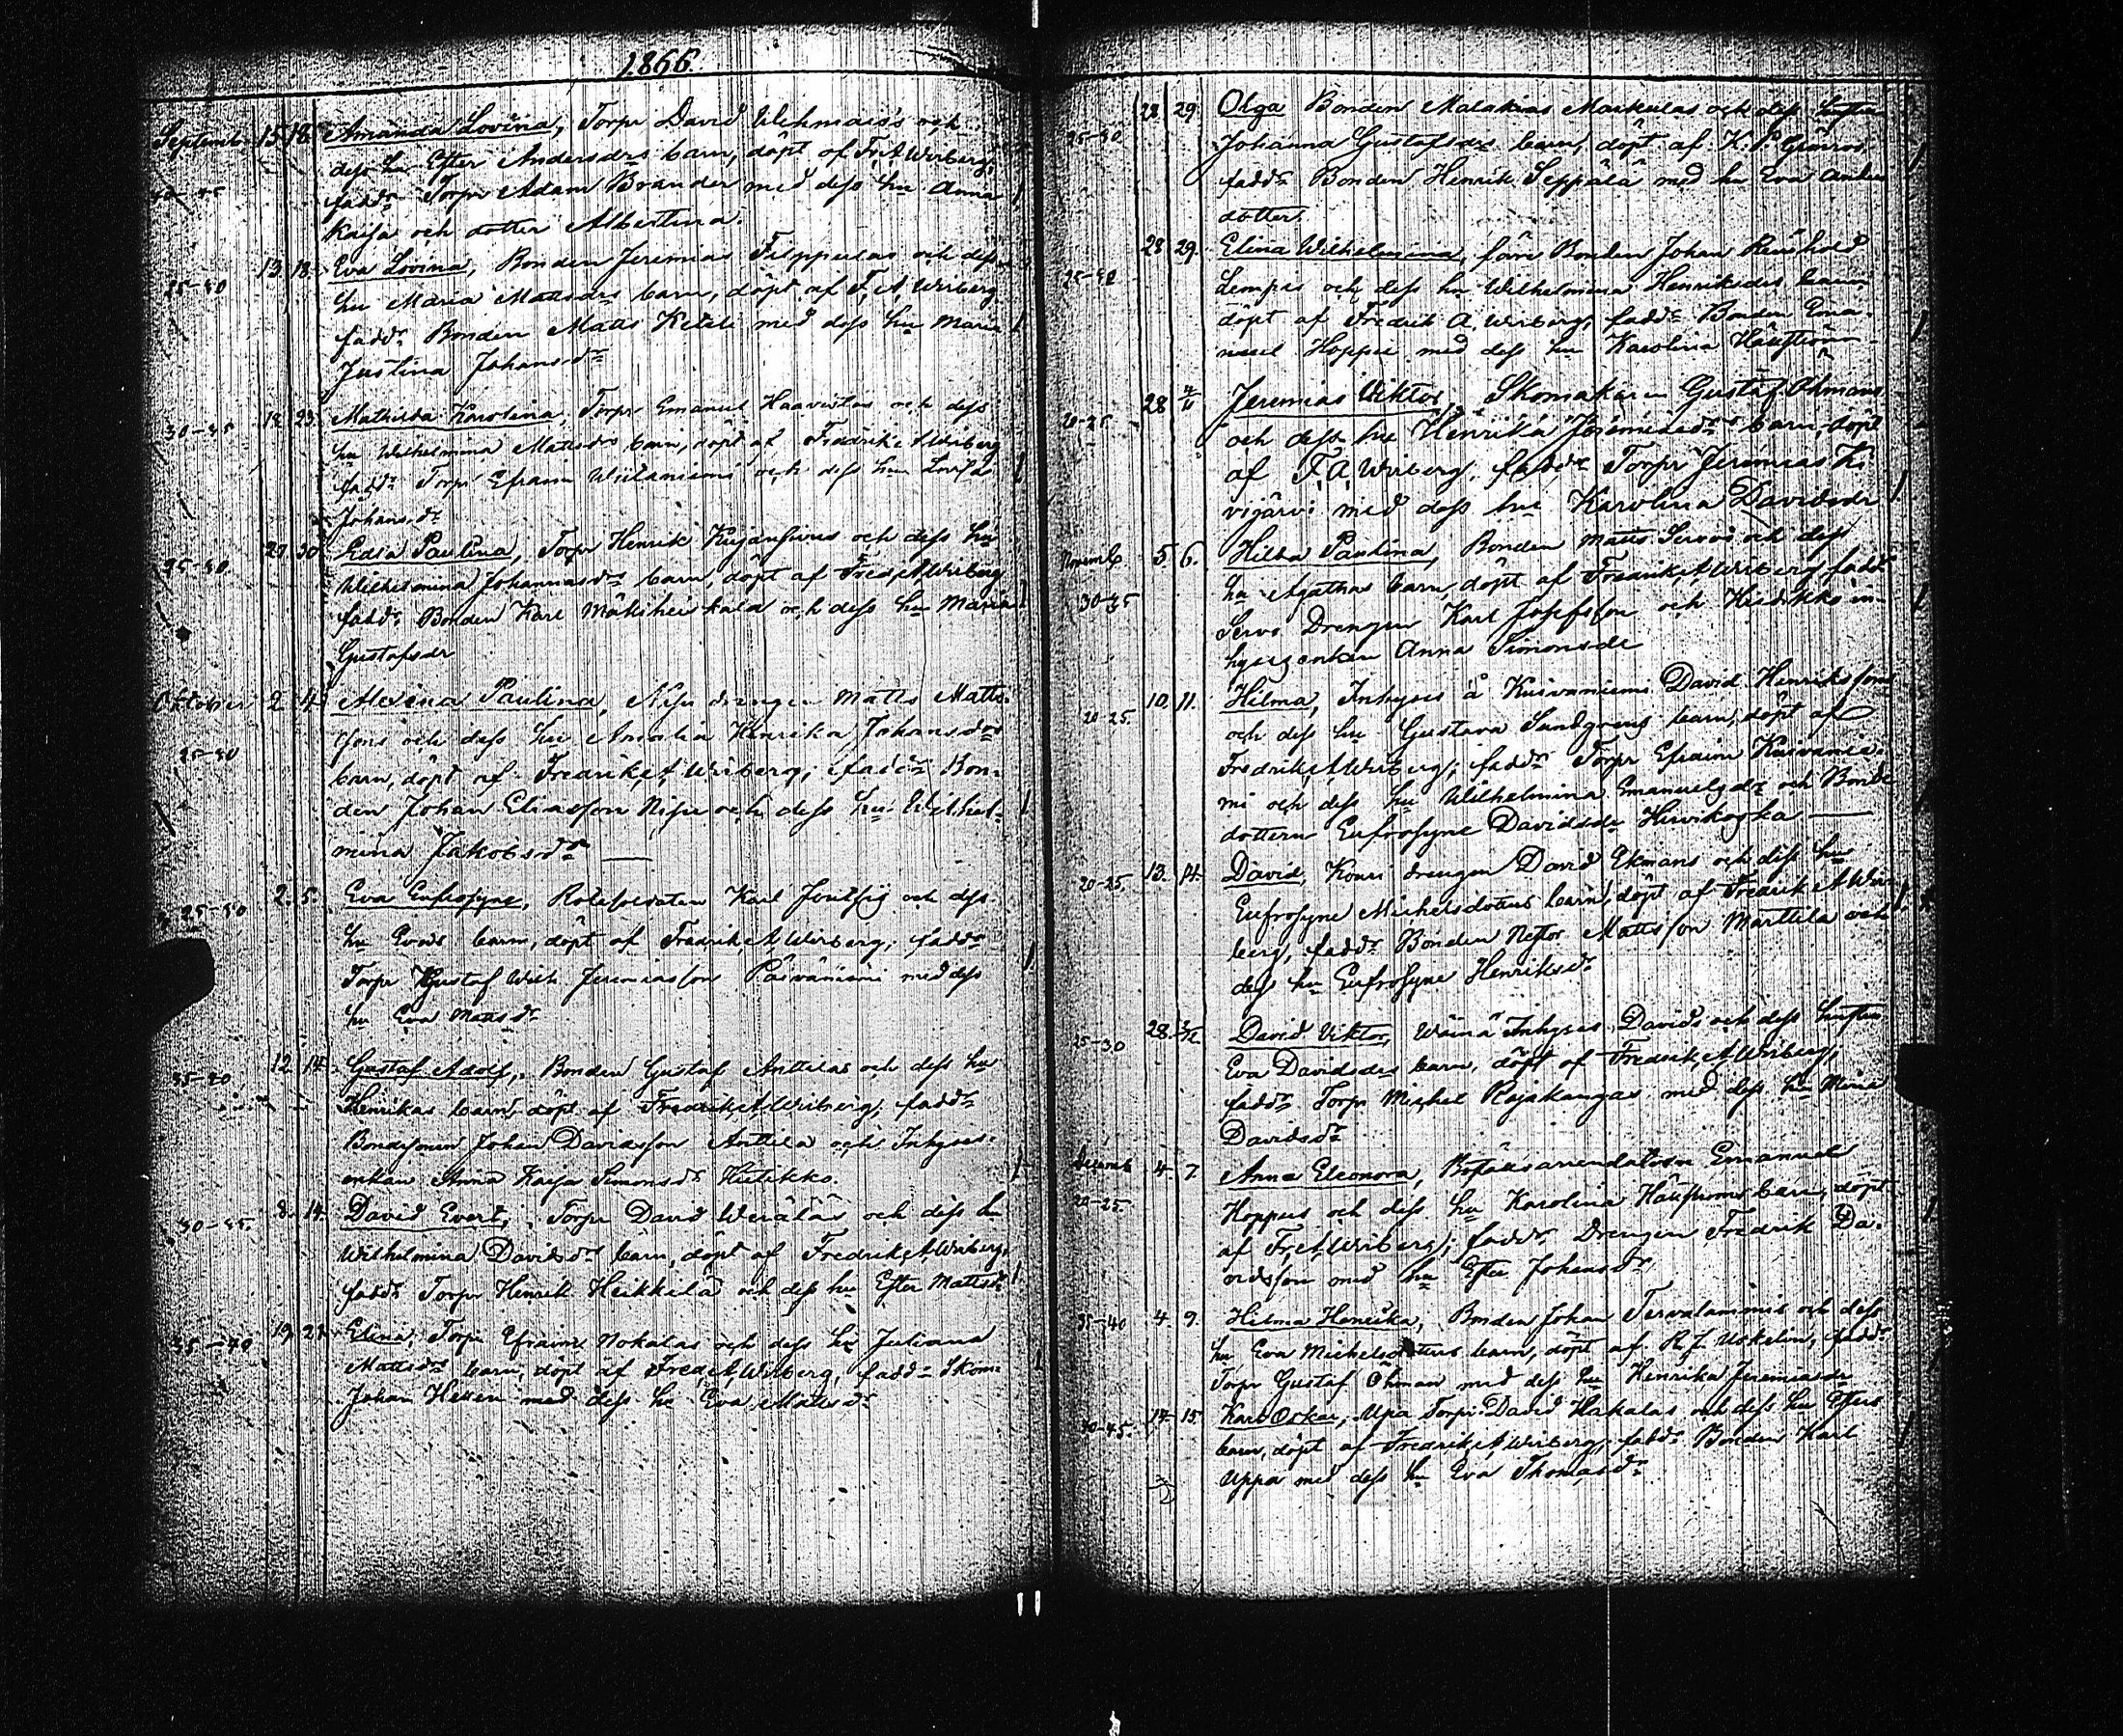 1866.
Septemb. 15 18. Amanda Lovina, Torp. David Wehmais's och
dess hu Ester Andersdrs barn, döpt af Fr. A Wiberg,
fadd. Torp. Adam Brander med dess hu Anna
Kaisa och dotter Albertina.
13. 18. Eva Lovina, Bonden Jeremias Filppulas och dess
25-30 hu Maria Mattsdrs barn, döpt af F. A Wiberg
fadd. Bonden Matts Ketola med dess hu Maria
Justina Johansdr
18. 23. Mathilda Karolina, Torp. Emanuel Haavistos och dess
30-35 hu Wilhelmina Mattsdrs barn, döpt af Fredrik A Wiberg
fadd. Torp. Efraim Wiitaniemi och dess hu Lovisa
Johansdr
27. 30. Edla Paulina, Torp. Henrik Kujansuus och dess hu
25-30 Wilhelmina Johannasdrs barn, döpt af Fred. A Wiberg
fadd. Bonden Karl och dess hu Maria
Gustafsdr
Oktober 2. 4. Alexina Paulina, drengen Matts Matts
sons och dess hu Amalia Henrika Johansdrs
25-30 barn, döpt af Fredrik A Wiberg; fadd. Bon-
den Johan Eliasson och dess hu Wilhel-
mina Jakobsdr
2. 5. Eva Eufrosyne, Rotesoldaten Karl och dess
25-30 hu Evas barn, döpt af Fredrik A Wiberg; fadd.
Torp. Gustaf Wilh. Jeremiasson med dess
hu Eva Mattsdr
12. 14. Gustaf Adolf, Bonden Gustaf Anttilas och dess hu
35-40 Henrikas barn, döpt af Fredrik A Wiberg; fadd.
Bondesonen Johan Davidsson Anttila och Inhyses-
enkan Anna Kaisa Simonsdr
8. 14. David Evert, Torp. David och dess hu
30-35. Wilhelmina Davidsdrs barn, döpt af Fredrik A Wiberg,
fadd. Torp. Henrik Heikkilä och dess hu Ester Mattsdr
19. 21. Elina, Torp. Efraim Nokalas och dess hu Juliana
35-40 Mattsdrs barn, döpt af Fred. A Wiberg, fadd. Skom.
Johan med dess hu Eva Mattsdr
28 29. Olga Bonden Malakias Markulas och dess hustru
25-30 Johanna Gustafsdrs barn, döpt af K. P.
fadd. Bonden Henrik Seppälä med hu Eva Anders
dotter.
28 29. Elina Wilhelmina, före Bonden Johan Reinhold
Lempis och dess hu Wilhelmina Henriksdrs barn
döpt af Fredrik A. Wiberg, fadd. Bonden Ema-
nuel Hoppu med dess hu Karolina
28 Jeremias Viktor, Skomakaren Gustaf Öhmans
20-25 och dess hu Henrika Jeremiasdrs barn, döpt
af F. A. Wiberg, fadd. Torp. Jeremias Ki
vijärvi med dess hu Karolina Davidsdr
Novemb. 5. 6. Hilda Paulina, Bonden Matts Servos och dess
hu Agathas barn, döpt af Fredrik A Wiberg fadd.
Servo Drengen Karl Josefsson och in-
hysesenkan Anna Simonsdr
10. 11. Hilma, Inhyses å Kuivaniemi David Henrikssons
20-25. och dess hu Gustava Sandgrens barn, döpt af
Fredrik A Wiberg; fadd. Torp. Efraim Kuivanie-
mi och dess hu Wilhelmina Emanuelsdr och Bonde
dottern Eufrosyne Davidsdr Hirvikoska
13. 14. David, Kouri drengen David Ekmans och dess hu
20-25. Eufrosyne Michelsdotters barn, döpt af Fredrik A Wi-
berg, fadd. Bonden Nestor Mattsson Marttila och
dess hu Eufrosyne Henriksdr
28. David Viktor, Inhyses Davids och dess hustru
25-30 Eva Davidsdrs barn, döpt af Fredrik A Wiberg,
fadd. Torp. Michel Rajakangas med dess hu Mina
Davidsdr
Decemb. 4. 7. Anna Eleonora, Emanuel
20-25. Hoppus och dess hu Karolina barn, döpt
af Fr. A Wiberg; fadd. Drengen Fredrik Da-
vidsson med hu Ester Johansdr
35-40 4. 9. Hilma Henrika, Bonden Johan Tervalammis och dess
hu Eva Michelsdotters barn, döpt af R. J. Uskelin, fadd.
Torp. Gustaf Öhman med dess hu Henrika Jeremiasdr
14. 15. Karl Oskar, Torp. David Hakalas och dess hu
40-45. barn, döpt af Fredrik A Wiberg, fadd. Bonden Karl
Uppa med dess hu Eva Thomasdr